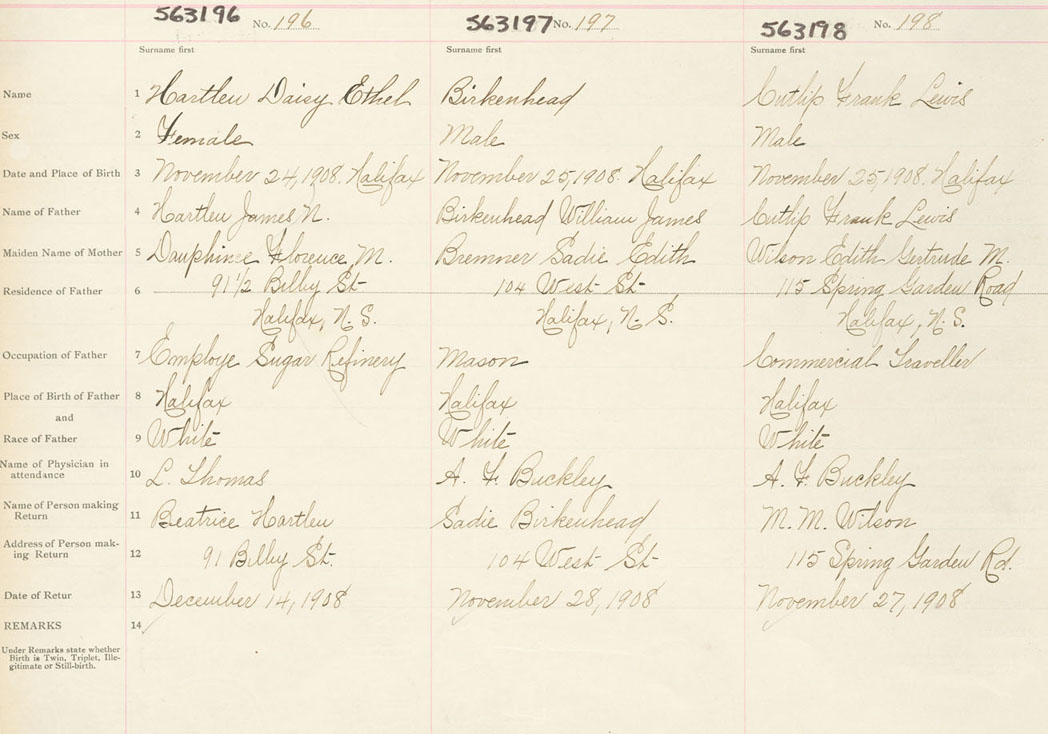 563196 No. 196 563197 No. 197 563198 No. 198
Surname first Surname first Surname first
Name 1 Hartlen Daisy Ethel Birkenhead Cutlip Frank Lewis
Sex 2 Female Male Male
Date and Place of Birth 3 November 24, 1908. Halifax November 25, 1908. Halifax November 25, 1908. Halifax
Name of Father 4 Hartlen James N. Birkenhead William James Cutlip Frank Lewis
Maiden Name of Mother 5 Dauphinee Florence M. Bremner Sadie Edith Wilson Edith Gertrude M.
Residence of Father 6 91 1/2 Bilby St 104 West St 115 Spring Garden Road
Halifax, N.S. Halifax, N.S. Halifax, N.S.
Occupation of Father 7 Employe Sugar Refinery Mason Commercial Traveller
Place of Birth of Father 8 Halifax Halifax Halifax
and
Race of Father 9 White White White
Name of Physician in
attendance 10 L. Thomas A. F. Buckley A. F. Buckley
Name of Person making
Return 11 Beatrice Hartlen Sadie Birkenhead M. M. Wilson
Address of Person mak-
ing Return 12 91 Bilby St. 104 West St 115 Spring Garden Rd.
Date of Retur 13 December 14, 1908 November 28, 1908 November 27, 1908
REMARKS 14
Under Remarks state whether
Birth is Twin, Triplet, Ille-
gitimate or Still-birth.